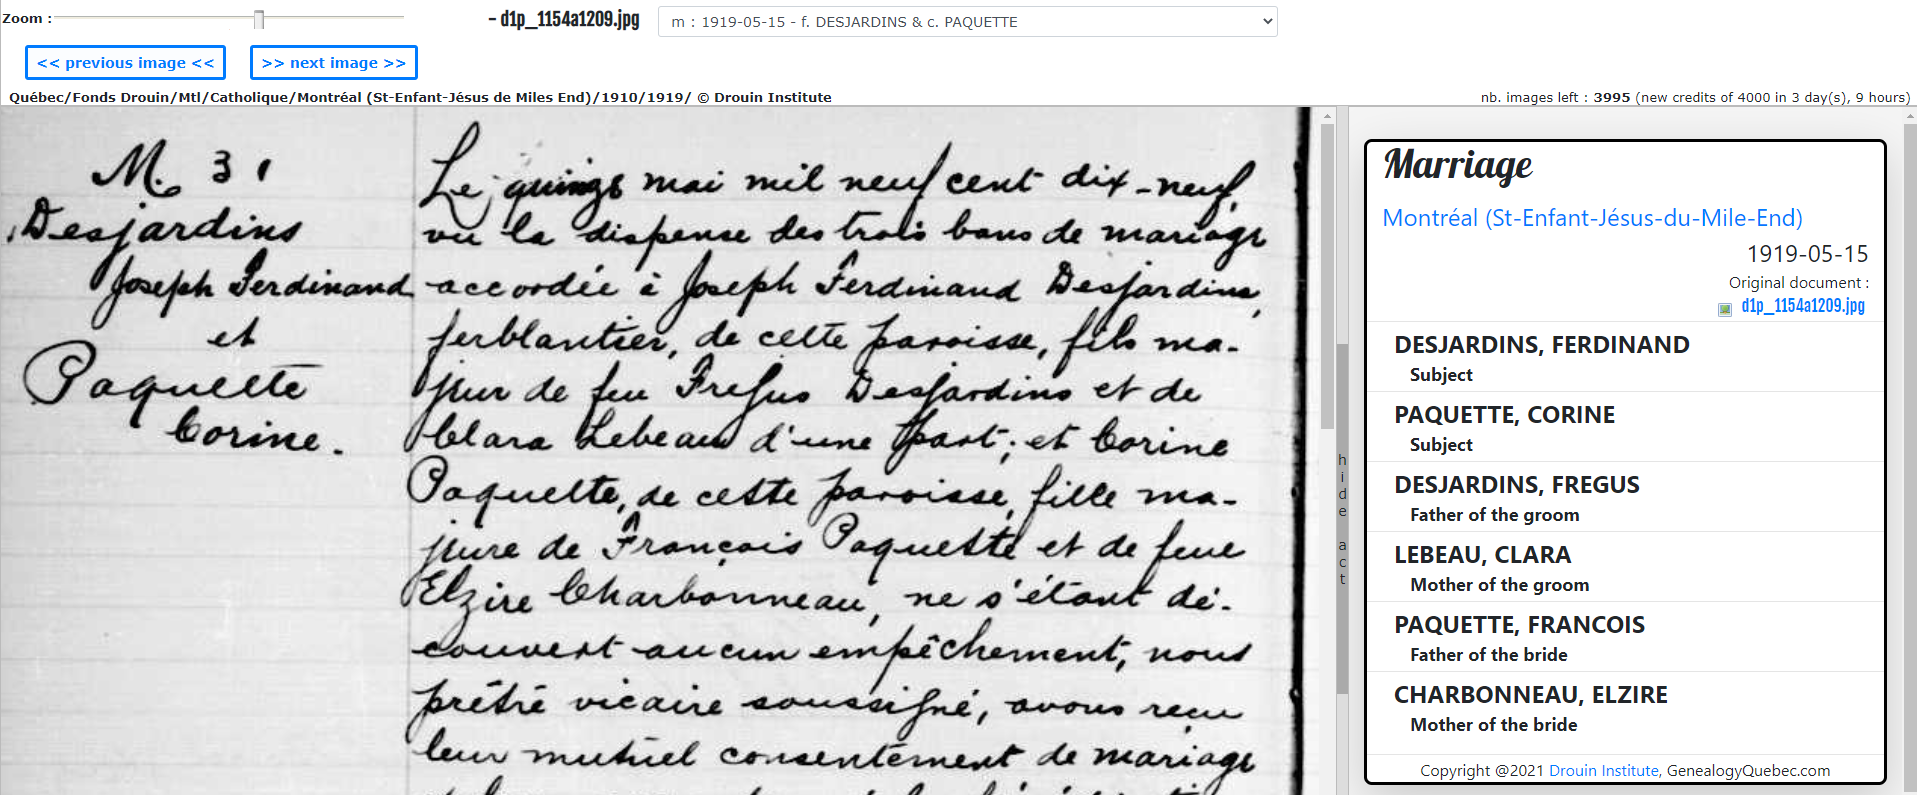 Zoom :
- d1p_1154a1209.jpg
m : 1919-05-15 - f. DESJARDINS & c. PAQUETTE
<< previous image <<
>> next image >>
Québec/Fonds Drouin/Mtl/Catholique/Montréal (St-Enfant-Jésus de Miles End)/1910/1919/ © Drouin Institute
nb. images left : 3995 (new credits of 4000 in 3 day(s), 9 hours)
M. 31
Desjardins
Joseph Ferdinand
et
Paquette
Corine.
Le quinze mai mil neuf cent dix-neuf,
vu la dispense des trois bans de mariage
accordée à Joseph Ferdinand Desjardins,
ferblantier, de cette paroisse, fils ma-
jeur de feu Fregus Desjardins et de
Clara Lebeau d'une part; et Corine
Paquette, de cette paroisse, fille ma-
jeure de François Paquette et de feue
Elzire Charbonneau, ne s'étant dé-
couvert aucun empêchement, nous
prêtre vicaire soussigné, avons reçu
leur mutuel consentement de mariage
hide act
Marriage
Montréal (St-Enfant-Jésus-du-Mile-End)
1919-05-15
Original document :
d1p_1154a1209.jpg
DESJARDINS, FERDINAND
Subject
PAQUETTE, CORINE
Subject
DESJARDINS, FREGUS
Father of the groom
LEBEAU, CLARA
Mother of the groom
PAQUETTE, FRANCOIS
Father of the bride
CHARBONNEAU, ELZIRE
Mother of the bride
Copyright @2021 Drouin Institute, GenealogyQuebec.com